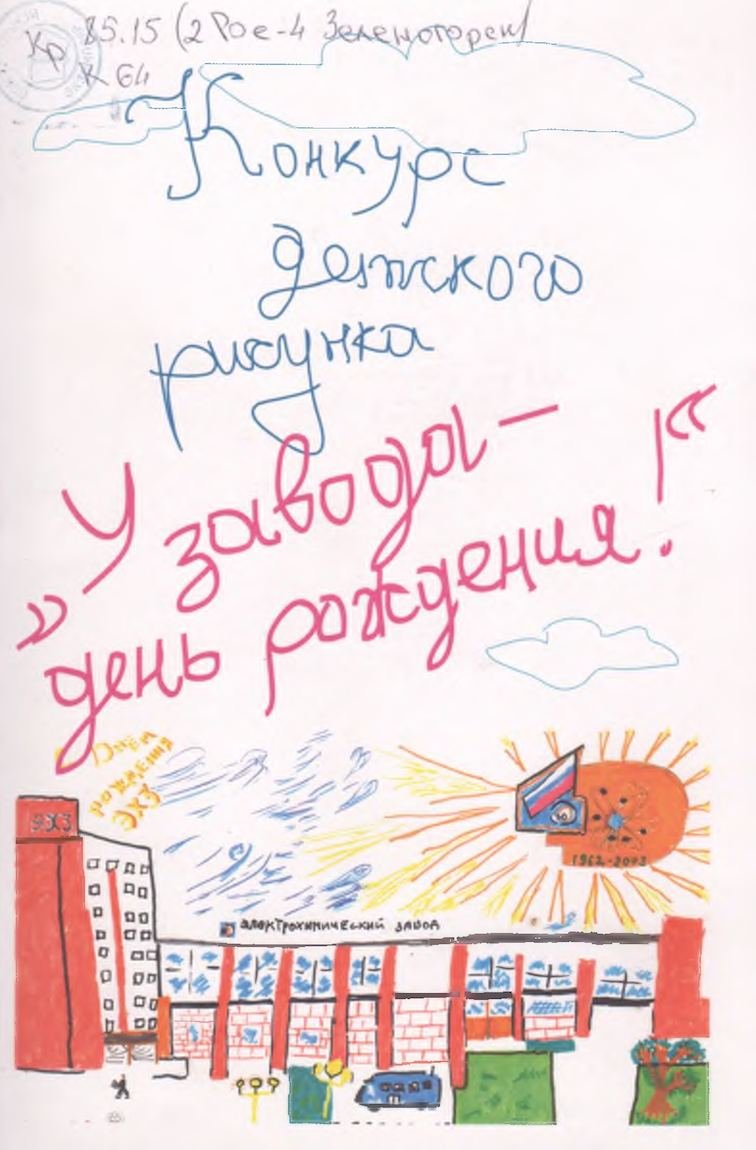 Кр 85.15 (2 Рос-4 Зеленогорск)
К 64
Конкурс
детского
рисунка
„У завода –
день рождения!“
Днём
рождения
ЭХЗ
ЭХЗ
1962-2013
Электрохимический завод